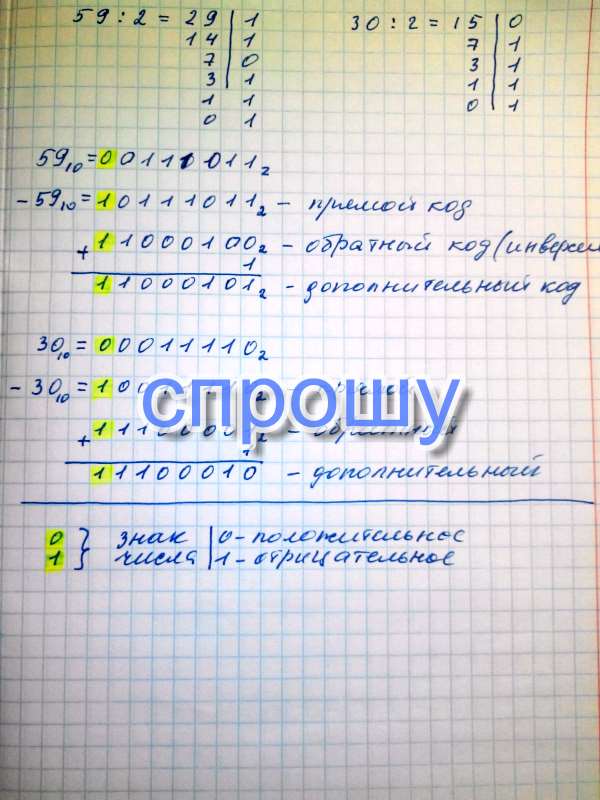 59 : 2 = 29 | 1
14 | 1
7 | 0
3 | 1
1 1
0 1
30 : 2 = 15 | 0
7 | 1
3 | 1
1 | 1
0 | 1
59₁₀ = 00111011₂
- 59₁₀ = 10111011₂ - прямой код
+ 11000100₂ - обратный код (инверси
1
11000101₂ - дополнительный код
30₁₀ = 00011110₂
- 30₁₀ =
спрошу
+
11100010 - дополнительный
0 } знак | 0 - положительное
1 } числа | 1 - отрицательное